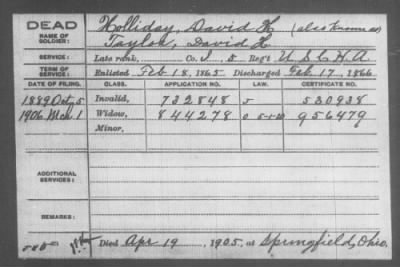 DEAD
NAME OF SOLDIER:
Holliday, David H. (also known as)
Taylor, David H.
SERVICE: Late rank, Co. I, 5 Reg't U.S.C.H.A.
TERM OF SERVICE: Enlisted Feb 18, 1865 Discharged Feb. 17, 1866.
DATE OF FILING. CLASS. APPLICATION NO. LAW. CERTIFICATE NO.
1889 Oct 5 Invalid, 732848 5 530938
1906 Mch 1 Widow, 844278 956479
Minor,
ADDITIONAL SERVICES:
REMARKS:
Died Apr 19, 1905, at Springfield, Ohio.